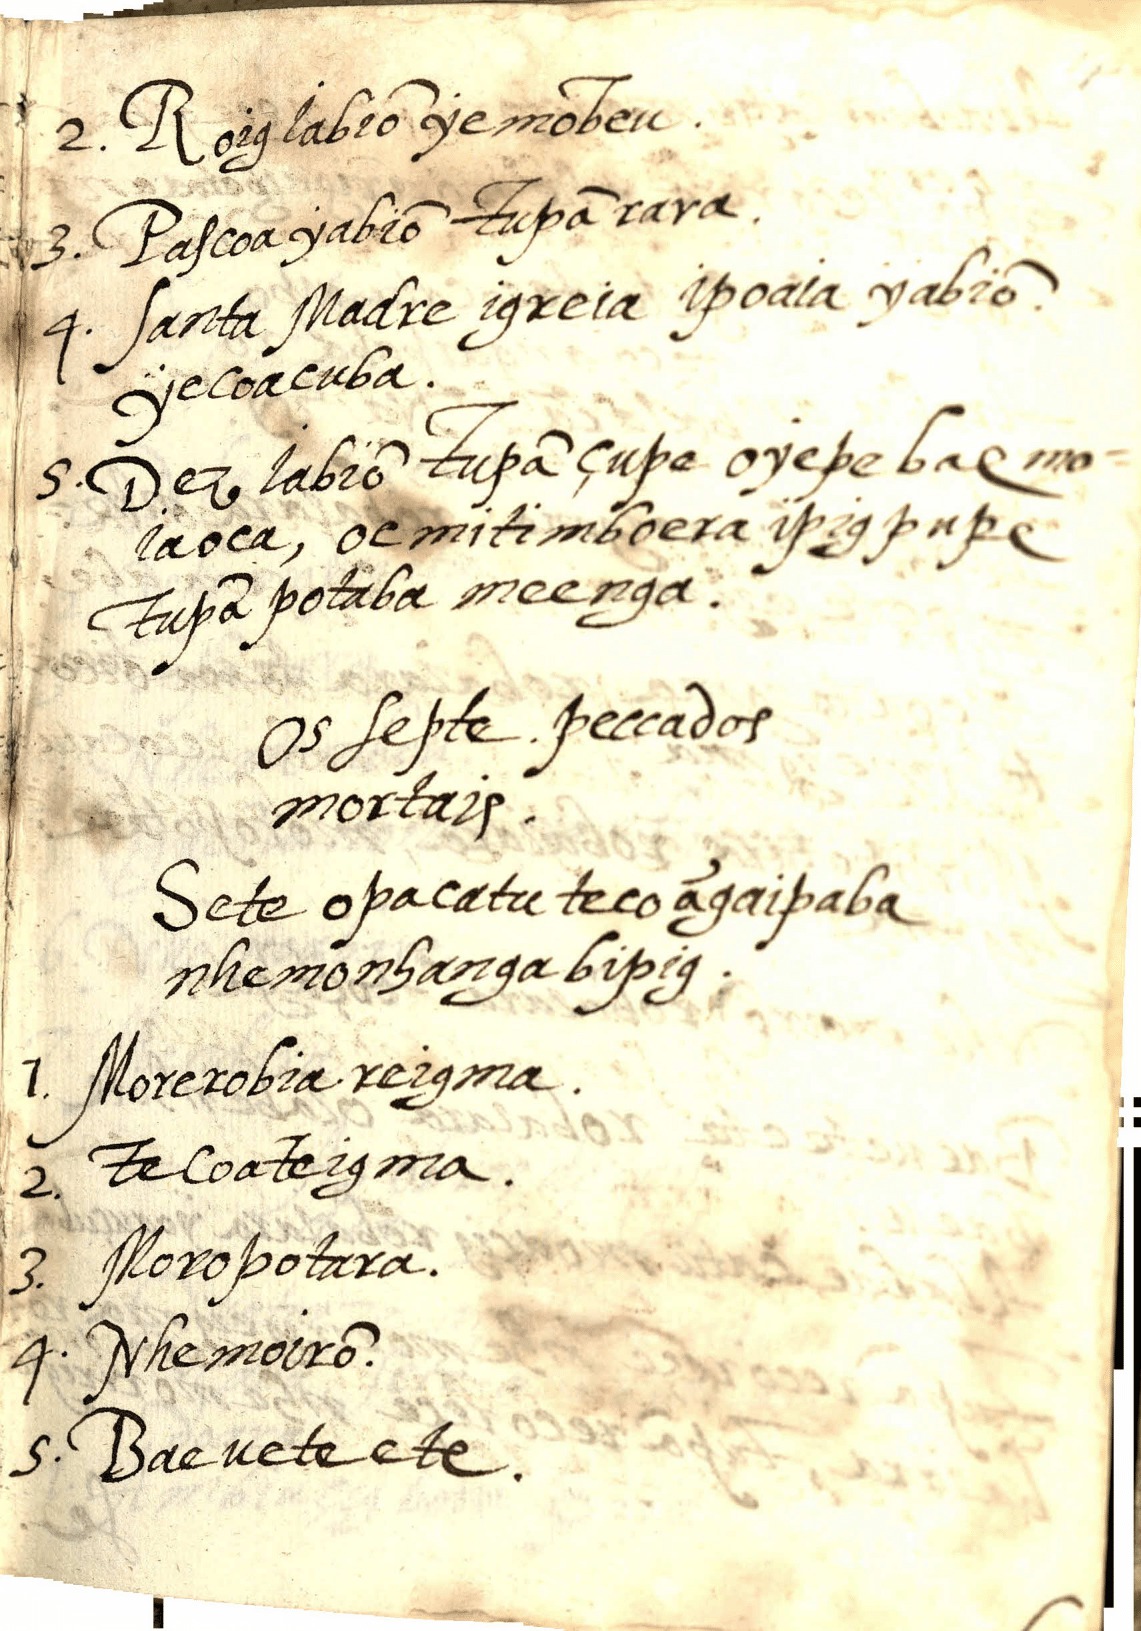 2. Roig iabiõ ÿemõbeu.
3. Pascoa yabiõ Tupã rara.
4. Santa Madre igreia ipoaia yabiõ.
ÿecoacuba.
5. Dez iabiõ Tupã çupe oÿepe bae mo-
iaoca, oemitimboera ipig pupe
Tupã potaba meenga.
Os septe. peccados
mortais.
Sete opacatu teco ãgaipaba
nhemonhanga bipig.
1. Morerobia reigma.
2. Tecoateigma.
3. Moropotara.
4. Nhemoirõ.
5. Bae uete ete.